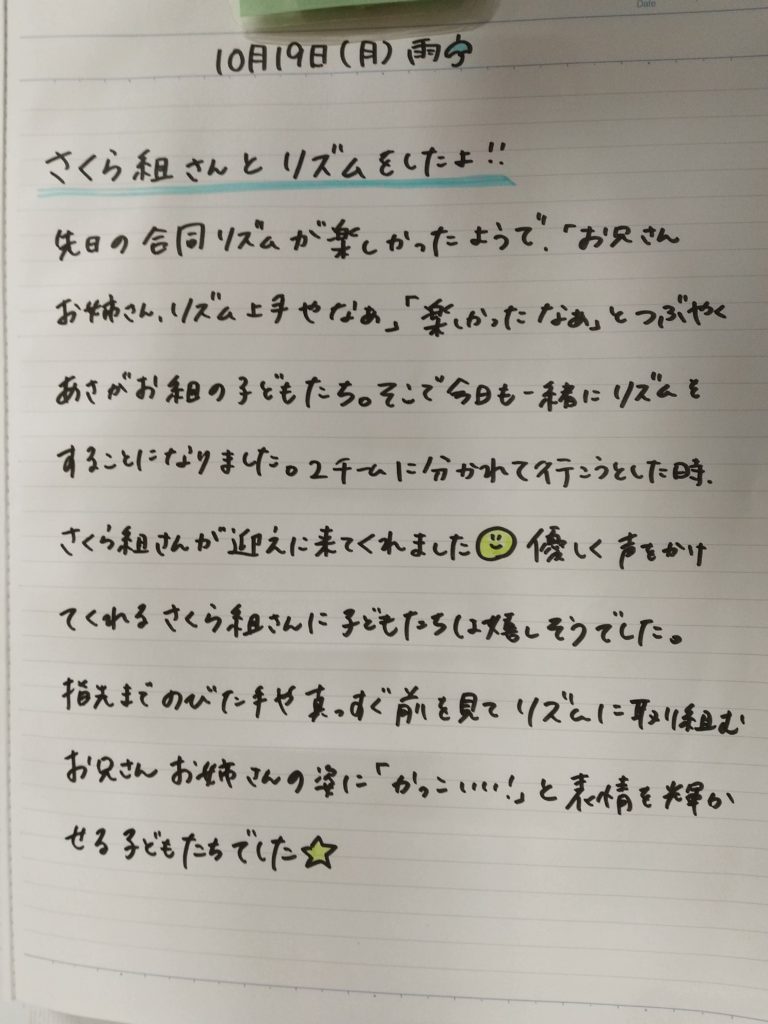 Date
10月19日(月) 雨
さくら組さんと リズムをしたよ!!
先日の合同リズムが楽しかったようで、「お兄さん
お姉さん、リズム上手やなぁ」「楽しかったなぁ」とつぶやく
あさがお組の子どもたち。そこで今日も一緒にリズムを
することになりました。2チームに分かれて行こうとした時、
さくら組さんが迎えに来てくれました 優しく声をかけ
てくれるさくら組さんに子どもたちは嬉しそうでした。
指先までのびた手や真っすぐ前を見てリズムに取り組む
お兄さんお姉さんの姿に「かっこいい!」と表情を輝か
せる子どもたちでした☆